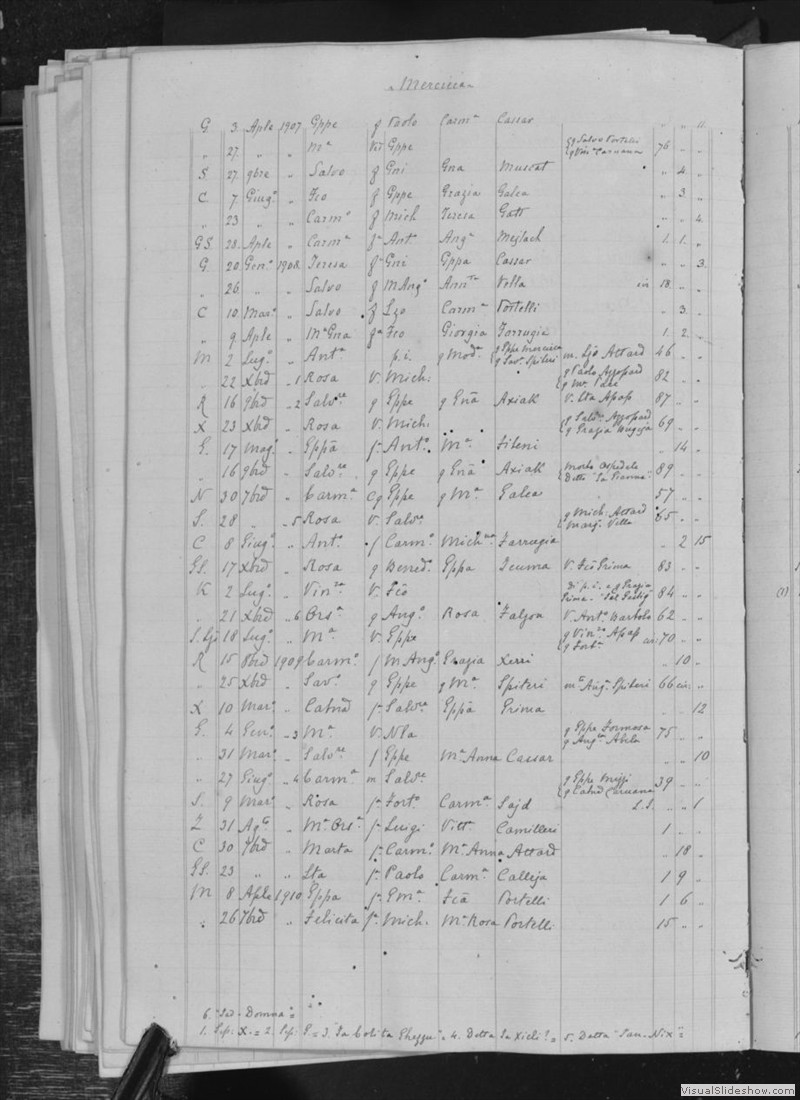 Mercieca
G. 3. Aple 1907 Gppe g Paolo Carmª Cassar „ „ 11.
„ 27. „ „ Mª Vª Gppe {g Salvo Portelli {g Vinª Caruana 76 „ „
S. 27. 9bre „ Salvo f Gni Gna Muscat „ 4. „
C 7. Giugº „ Fco f Gppe Grazia Galea „ 3. „
„ 23 „ „ Carmº f Mich Teresa Gatt „ „ 4.
GS. 28. Aple „ Carmª fª Antº Angª Mejlach 1. 1. „
G. 20. Genº 1908. Teresa fª Gni Gppa Cassar „ „ 3.
„ 26. „ „ Salvo g M Angº Vella in 18. „ „
C 10. Marº „ Salvo f Lzo Carmª Portelli „ 3. „
„ 9. Aple „ Mª Gna fª Fco Giorgia Farrugia 1. 2. „
M 2 Lugº „ Antª p.i. g Modª {g Gppe Mercieca {g Savª Spiteri m. Ljo Attard 46 „ „
„ 22 Xbrd „ 1 Rosa V. Mich: {g Paolo Azzopard 82 „ „
R 16 9brd „ 2 Salvre g Eppe g Gnã Axiak V. Lta Apap 87 „ „
X 23 Xbrd „ Rosa V. Mich. {g Salvº Azzopard {g Grazia Bugeja 69 „ „
G. 17 Magº „ Eppã fª Antº Mª Fiteni „ 14 „
„ 16 9brd „ Salvre g Eppe g Gnã Axiak {Morto Ospedale {Detto 89 „ „
N 30 7brd „ Carmª Cg Eppe g Mª Galea 57 „ „
S. 28 „ „ 5 Rosa V. Salvre g Mich: Attard Margª Vella 65 „ „
C 8 Giugº „ Antº f Carmº Michna Farrugia „ 2 15
GS. 17 Xbrd „ Rosa g Benedº Eppa Icuma V. Fco Grima 83 „ „
K 2 Lugº „ Vinza V. Fco Di p.i. e g Grazia Grima 84 „ „
„ 21 Xbrd „ 6 Orsª g Angº Rosa Falzon V. Antº Bartolo 62 „ „
S. Lj 18 Lugº „ Mª V. Eppe g Vinzº Apap g Fortª cir: 70 „ „
R 15 8brd 1909 Carmº f M Angº Grazia Xerri „ 10 „
„ 25 Xbrd „ Savº g Eppe g Mª Spiteri mº Augº Spiteri 66 cir: „
X 10 Marº „ Catnã fª Salvre Eppã Grima „ „ 12
G. 4 Genº „ 3 Mª V. Nla g Eppe Formosa g Angla Abela 75 „ „
„ 31 Marº „ Salvre f Eppe Mª Anna Cassar „ „ 10
„ 27 Giugº „ 4 Carmª m Salvre {g Eppe Mizzi {g Catnã Caruana 39 „ „
S. 9 Marº „ Rosa fª Fortº Carmª Sajd L.S. „ „ 1
Z 31 Agº „ Mª Orsª fª Luigi Vittª Camilleri 1 „ „
C 30 7brd „ Marta fª Carmº Mª Anna Attard „ 18 „
GS. 23 „ „ Lta fª Paolo Carmª Calleja 1 9 „
M 8 Aple 1910 Eppa fª Emª Fcã Portelli 1 6 „
„ 26 7brd „ Felicita fª Mich. Mª Rosa Portelli 15 „ „
6. "Sed-Domna" =
1. Sep: X. = 2. Sep: G. = 3. = 4. Detta = 5. Detta "San-Nix" =
(1)
VisualSlideshow.com